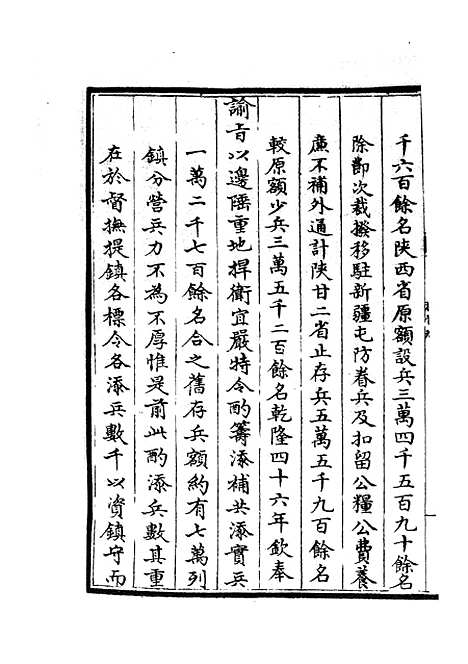 千六百餘名陝西省原額設兵三萬四千五百九十餘名
除節次裁撥移駐新疆屯防眷兵及扣留公糧公費養
廉不補外通計陝甘二省止存兵五萬五千九百餘名
較原額少兵三萬五千二百餘名乾隆四十六年欽奉
諭旨以邊陲重地捍衛宜嚴特令酌籌添補共添實兵
一萬二千七百餘名合之舊存兵額約有七萬列
鎮分營兵力不為不厚惟是前此酌添兵數其重
在於督撫提鎮各標令各添兵數千以資鎮守而